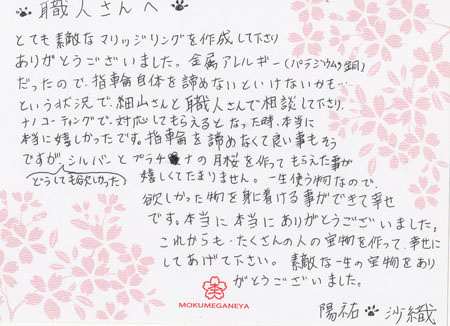 職人さんへ
とても素敵なマリッジリングを作成して下さり
ありがとうございました。金属アレルギー(パラジウム、銅)
だったので、指輪自体を諦めないといけないかも…
という状況で、細山さんと職人さんで相談して下さり、
ナノコーティングで対応してもらえるとなった時、本当に
本当に嬉しかったです。指輪を諦めなくて良い事もそう
ですがシルバーとプラチナの月桜を作ってもらえた事が
(どうしても欲しかった)
嬉しくてたまりません。一生使う物なので、
欲しかった物を身に着ける事ができて幸せ
です。本当に本当にありがとうございました。
これからも、たくさんの人の宝物を作って、幸せに
してあげて下さい。素敵な一生の宝物をあり
がとうございました。
陽祐 沙織
MOKUMEGANEYA